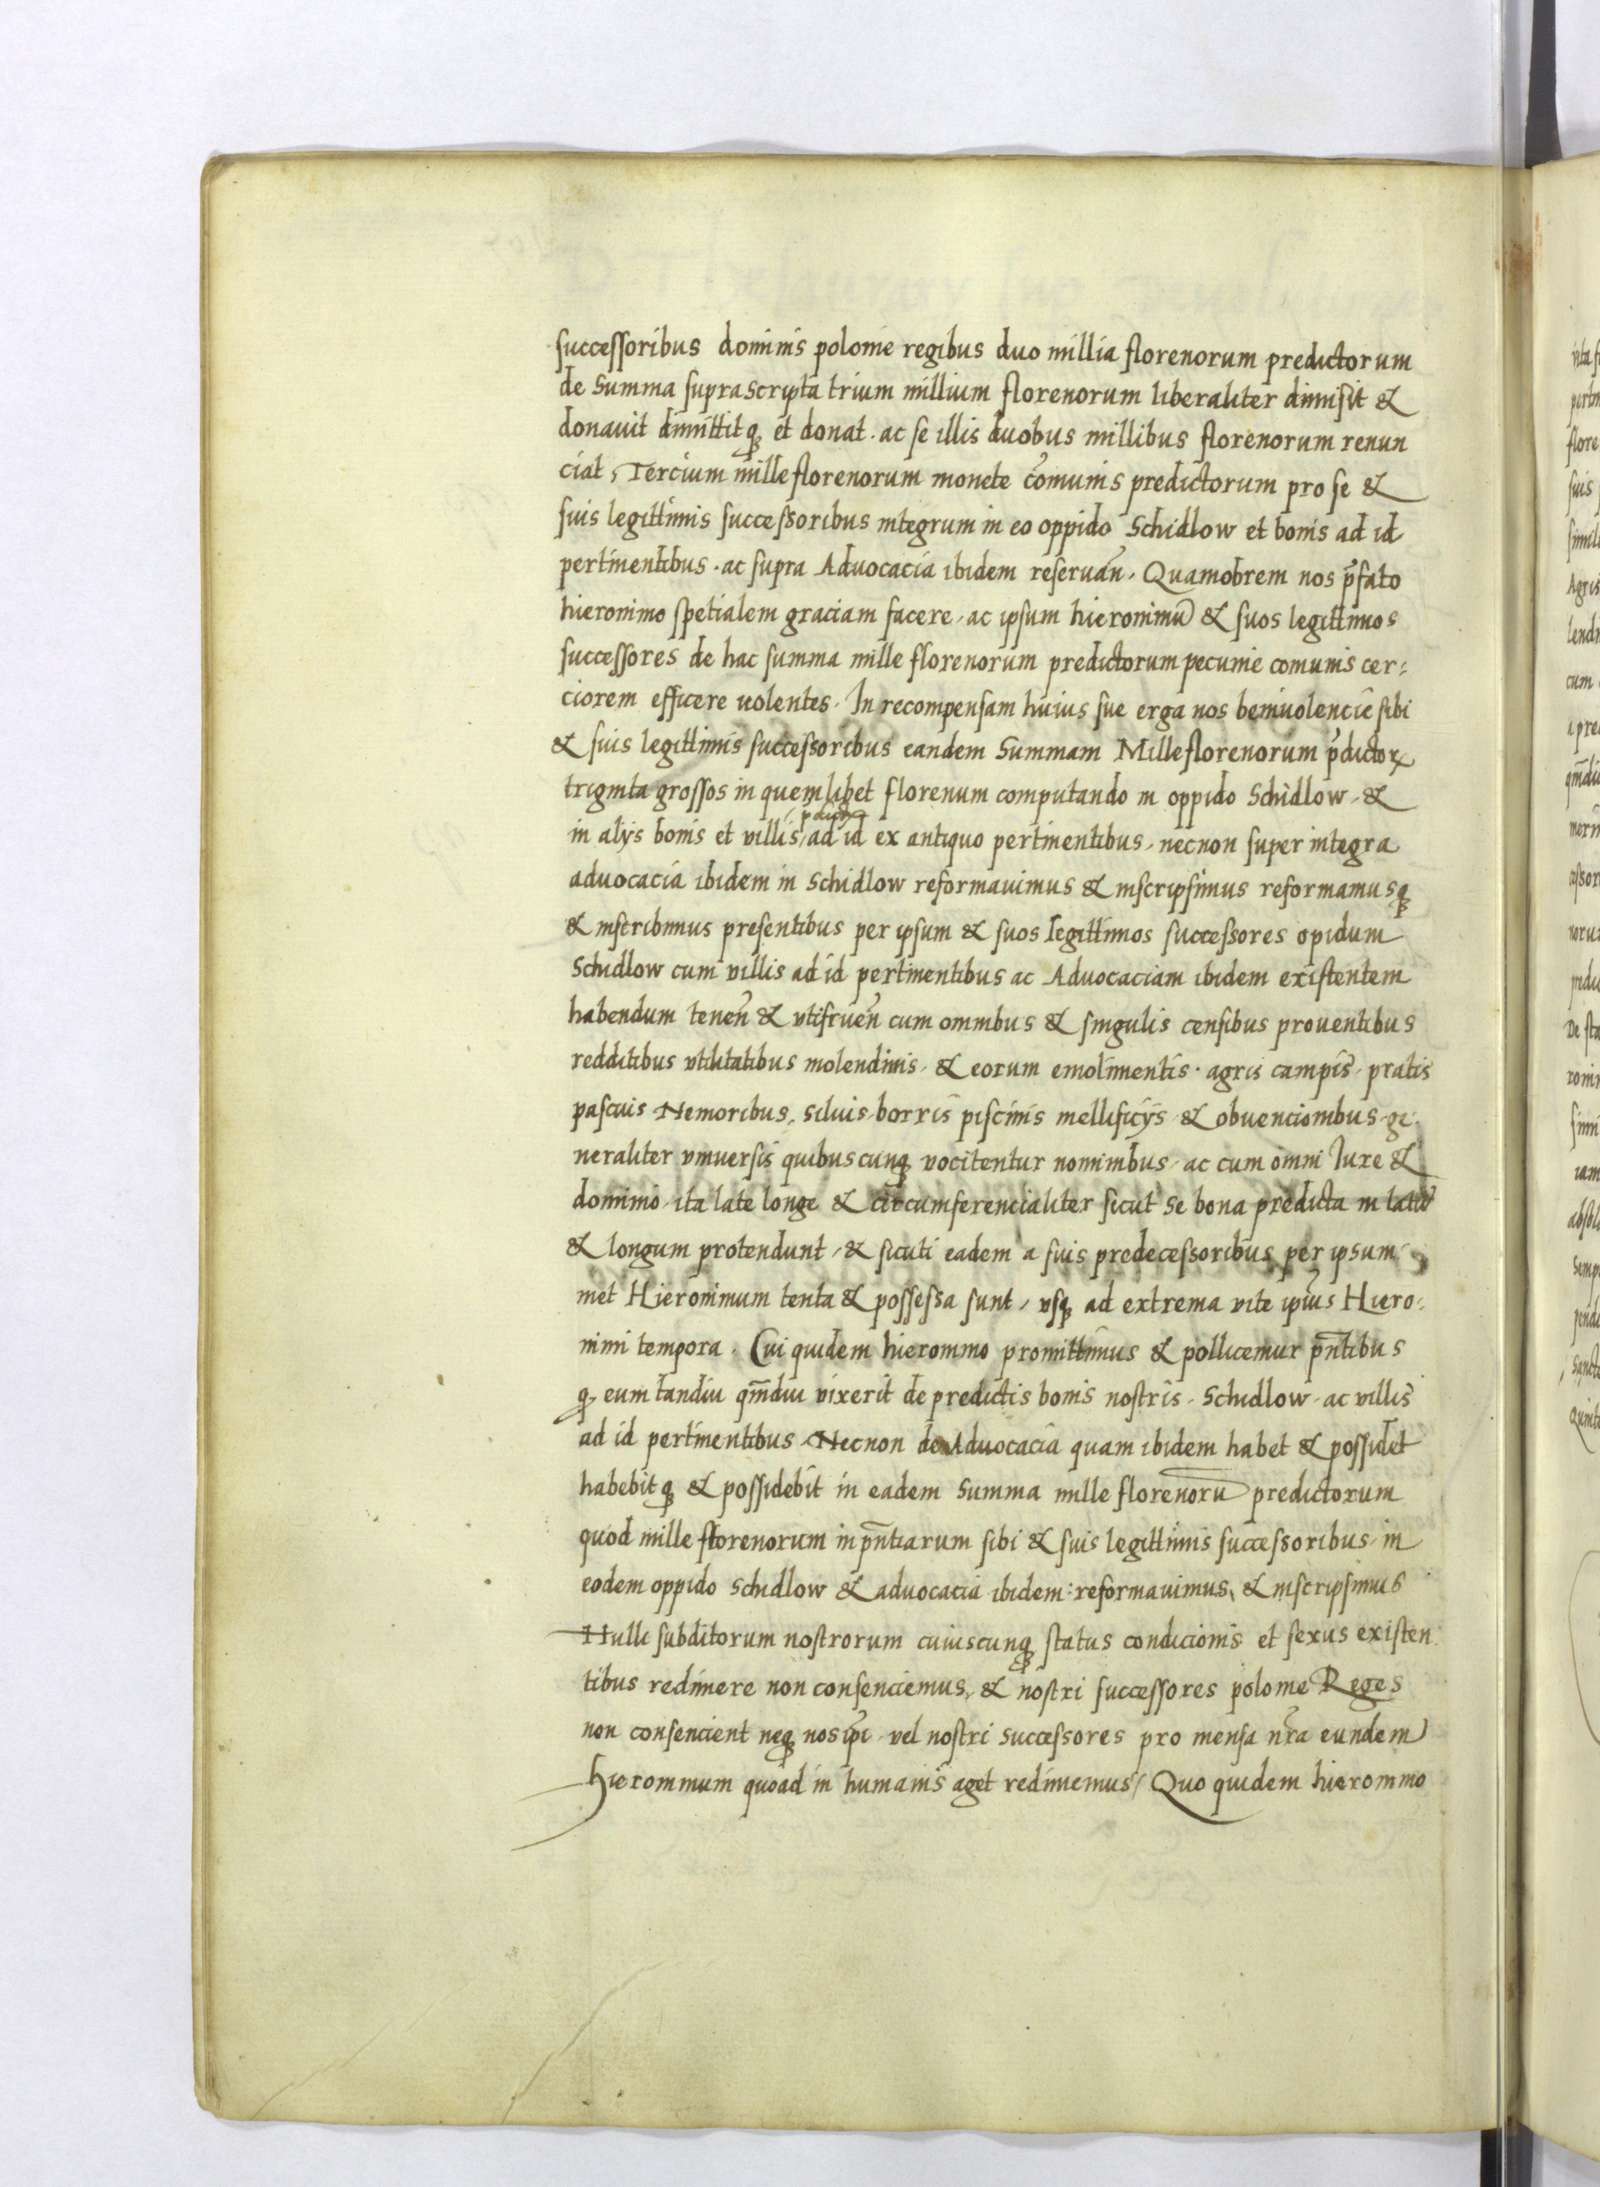 successoribus dominis polonie regibus duo millia florenorum predictorum
de Summa suprascripta trium millium florenorum liberaliter dimisit &
donauit dimittitq́; et donat. ac se illis duobus millibus florenorum renun
ciat, Tercium mille florenorum monete cōmunis predictorum pro se &
suis legittimis successoribus integrum in eo oppido Schidlow et bonis ad id
pertinentibus. ac supra Aduocacia ibidem reseruān, Quamobrem nos p̄fato
hieronimo spetialem graciam facere, ac ipsum hieronimū & suos legittimos
successores de hac summa mille florenorum predictorum pecunie comunis cer:
ciorem efficere uolentes. In recompensam huius sue erga nos beniuolencie sibi
& suis legittimis successoribus eandem Summam Mille florenorum p̄dictoꝝ
triginta grossos in quemlibet florenum computando in oppido Schidlow, &
in alijs bonis et villis ad id ex antiquo pertinentibus, necnon super integra
aduocacia ibidem in Schidlow reformauimus & inscripsimus reformamusq;
& inscribimus presentibus per ipsum & suos legittimos successores opidum
Schidlow cum villis ad id pertinentibus ac Aduocaciam ibidem existentem
habendum tenen̄ & vtifruen̄ cum omnibus & singulis censibus prouentibus
redditibus vtilitatibus molendinis, & eorum emolimentis. agris campis, pratis
pascuis Nemoribus, siluis, borris piscinis mellificijs & obuencionibus, ge:
neraliter vniuersis quibuscunq; vocitentur nominibus, ac cum omni Iure &
dominio, ita late longe & circumferencialiter sicut se bona predicta in latū
& longum protendunt, & sicuti eadem a suis predecessoribus per ipsum
met Hieronimum tenta & possessa sunt, vsq; ad extrema vite ipīus Hiero:
nimi tempora. Cui quidem hieronimo promittimus & pollicemur p̄ntibus
q; eum tandiu qm̄diu vixerit de predictis bonis nostris, Schidlow, ac villis
ad id pertinentibus, Necnon de Aduocacia quam ibidem habet & possidet
habebitq; & possidebit in eadem Summa mille florenorū predictorum
quod mille florenorum in p̄ntiarum sibi & suis legittimis successoribus, in
eodem oppido Schidlow & aduocacia ibidem: reformauimus, & inscripsimus
Nulli subditorum nostrorum cuiuscunq; status condicionis et sexus existen
tibus redimere non consenciemus, & nostri successores polonie Reges
non consencient neq; nos ip̄i, vel nostri successores pro mensa nr̄a eundem
Hieronimum quoad in humanis aget redimemus, Quo quidem hieronimo